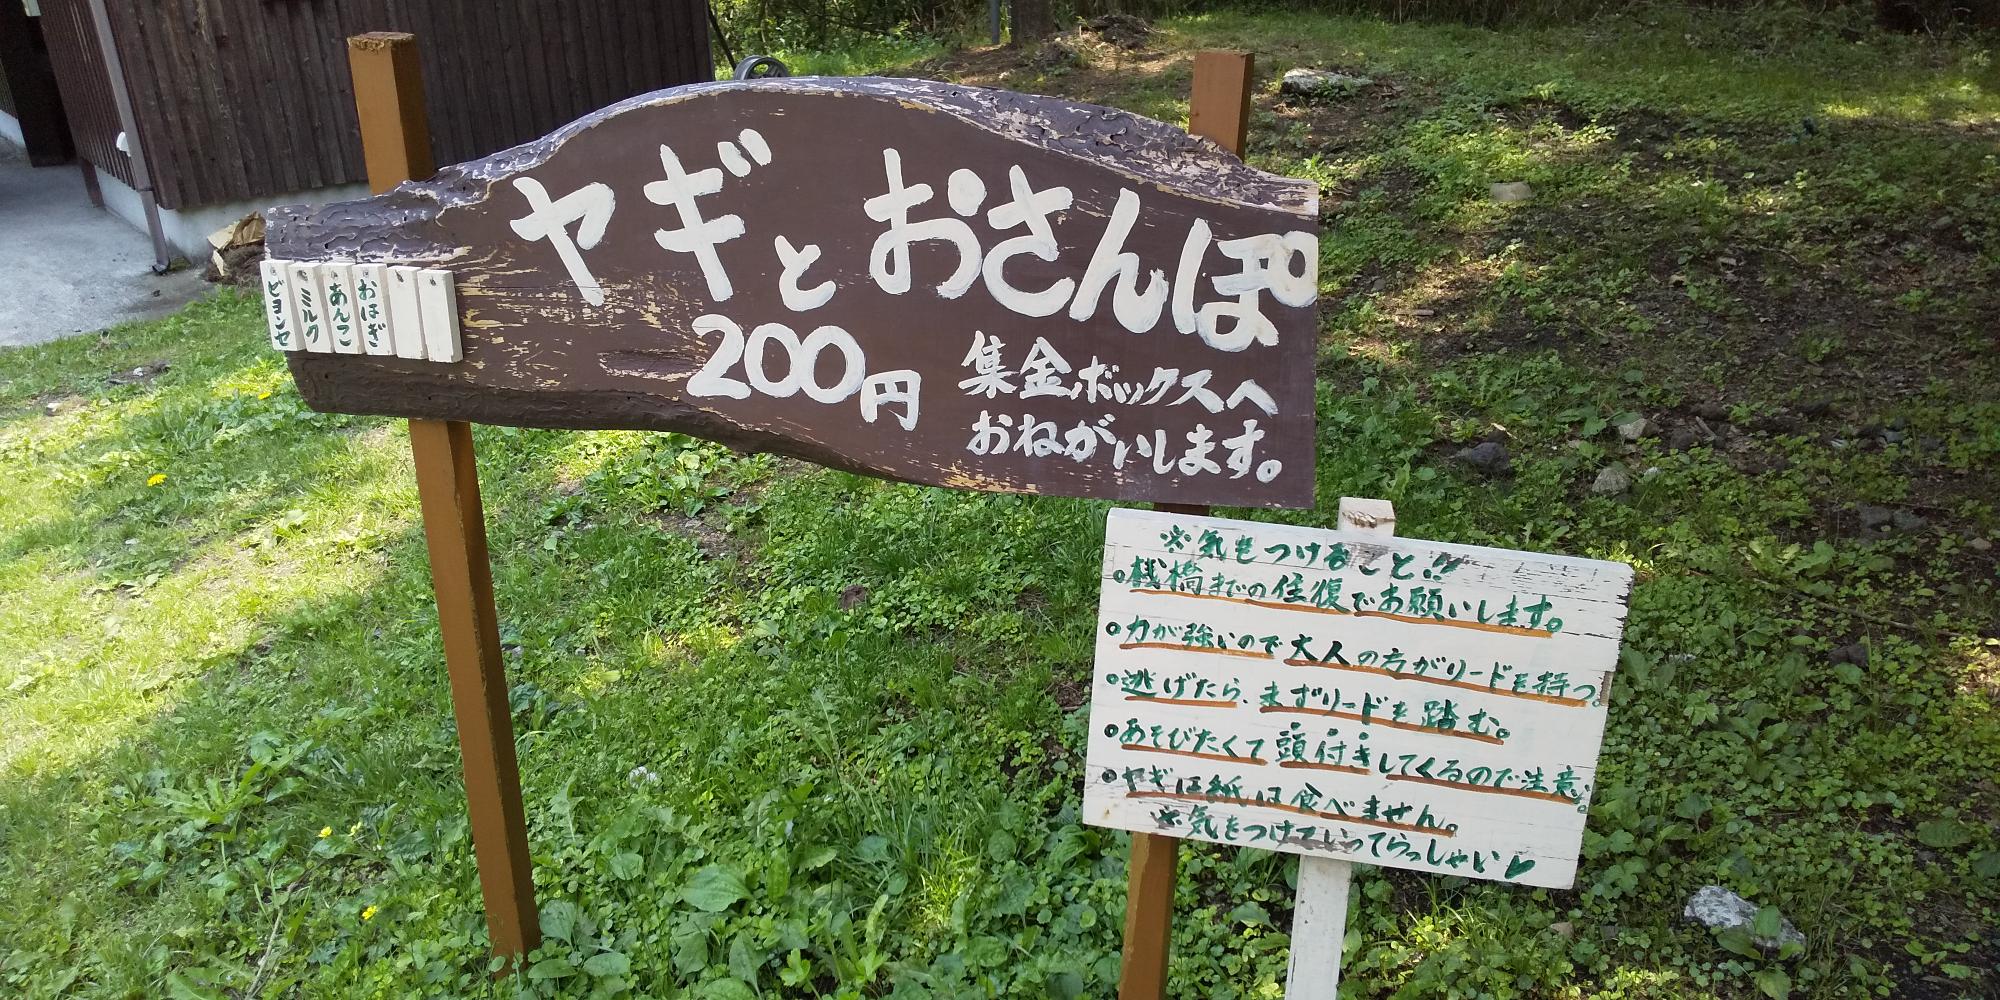 ヤギとおさんぽ
200円
集金ボックスへ
おねがいします。
ビヨンセ
ミルク
あんこ
おはぎ
※気をつけること!!
○桟橋までの往復でお願いします。
○力が強いので大人の方がリードを持つ。
○逃げたら、まずリードを踏む。
○あそびたくて頭付きしてくるので注意。
○ヤギは紙は食べません。
※気をつけていってらっしゃい♡